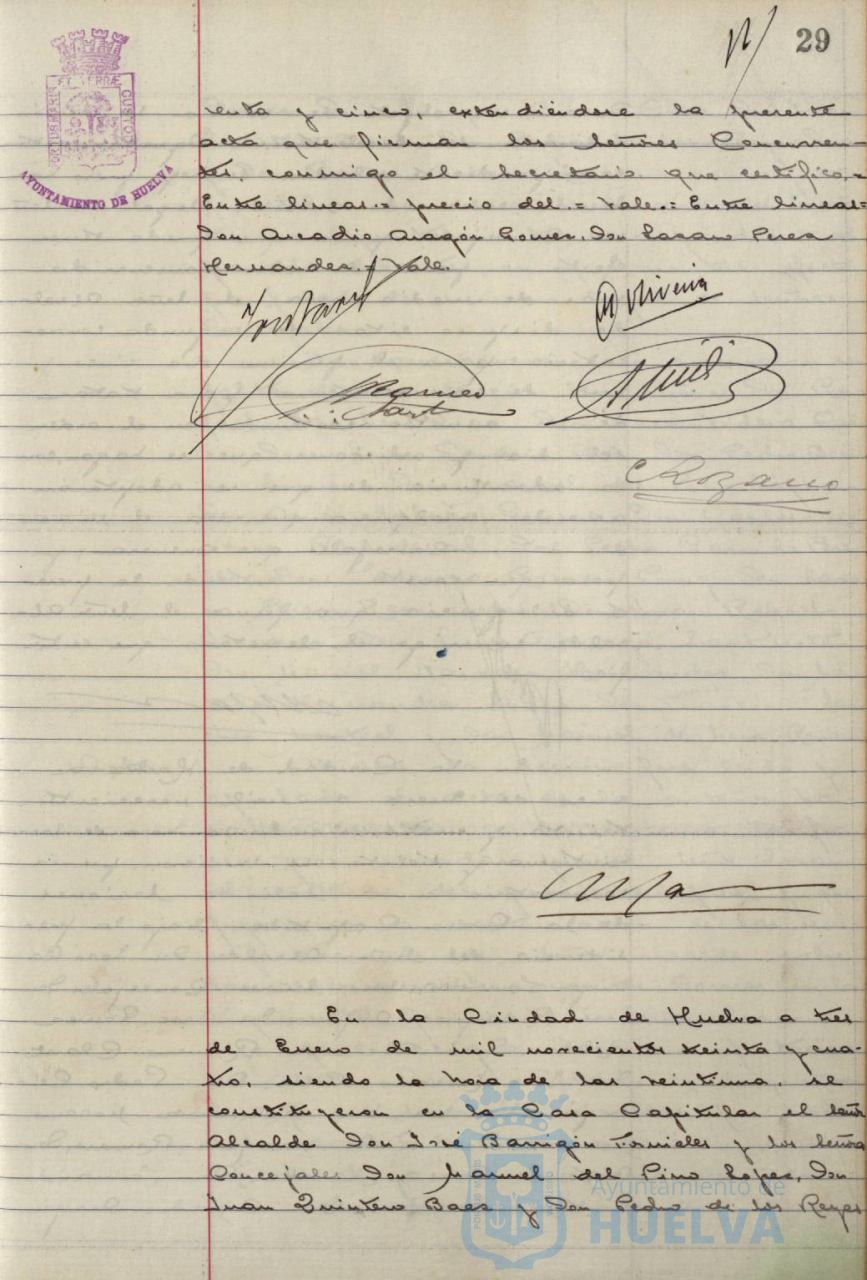 29
PORTUS MARIS ET TERRAE CUSTODIA
AYUNTAMIENTO DE HUELVA
renta y cinco, extendiéndose la presente
acta que firman los señores Concurren-
tes, conmigo el Secretario que certifico.=
Entre lineas.= precio del.= Vale.= Entre lineas=
Don Arcadio Aragón Gomez, Don Lazaro Perez
Hernandez.= Vale.
Oliveira
En la Ciudad de Huelva a tres
de Enero de mil novecientos treinta y cua-
tro, siendo la hora de las veintiuna, se
constituyeron en la Casa Capitular el señor
Alcalde Don José Barrigón Fornieles y los Señores
Concejales Don Manuel del Pino Lopez, Don
Juan Quintero Baez y Don Pedro de los Reyes
Ayuntamiento de
HUELVA